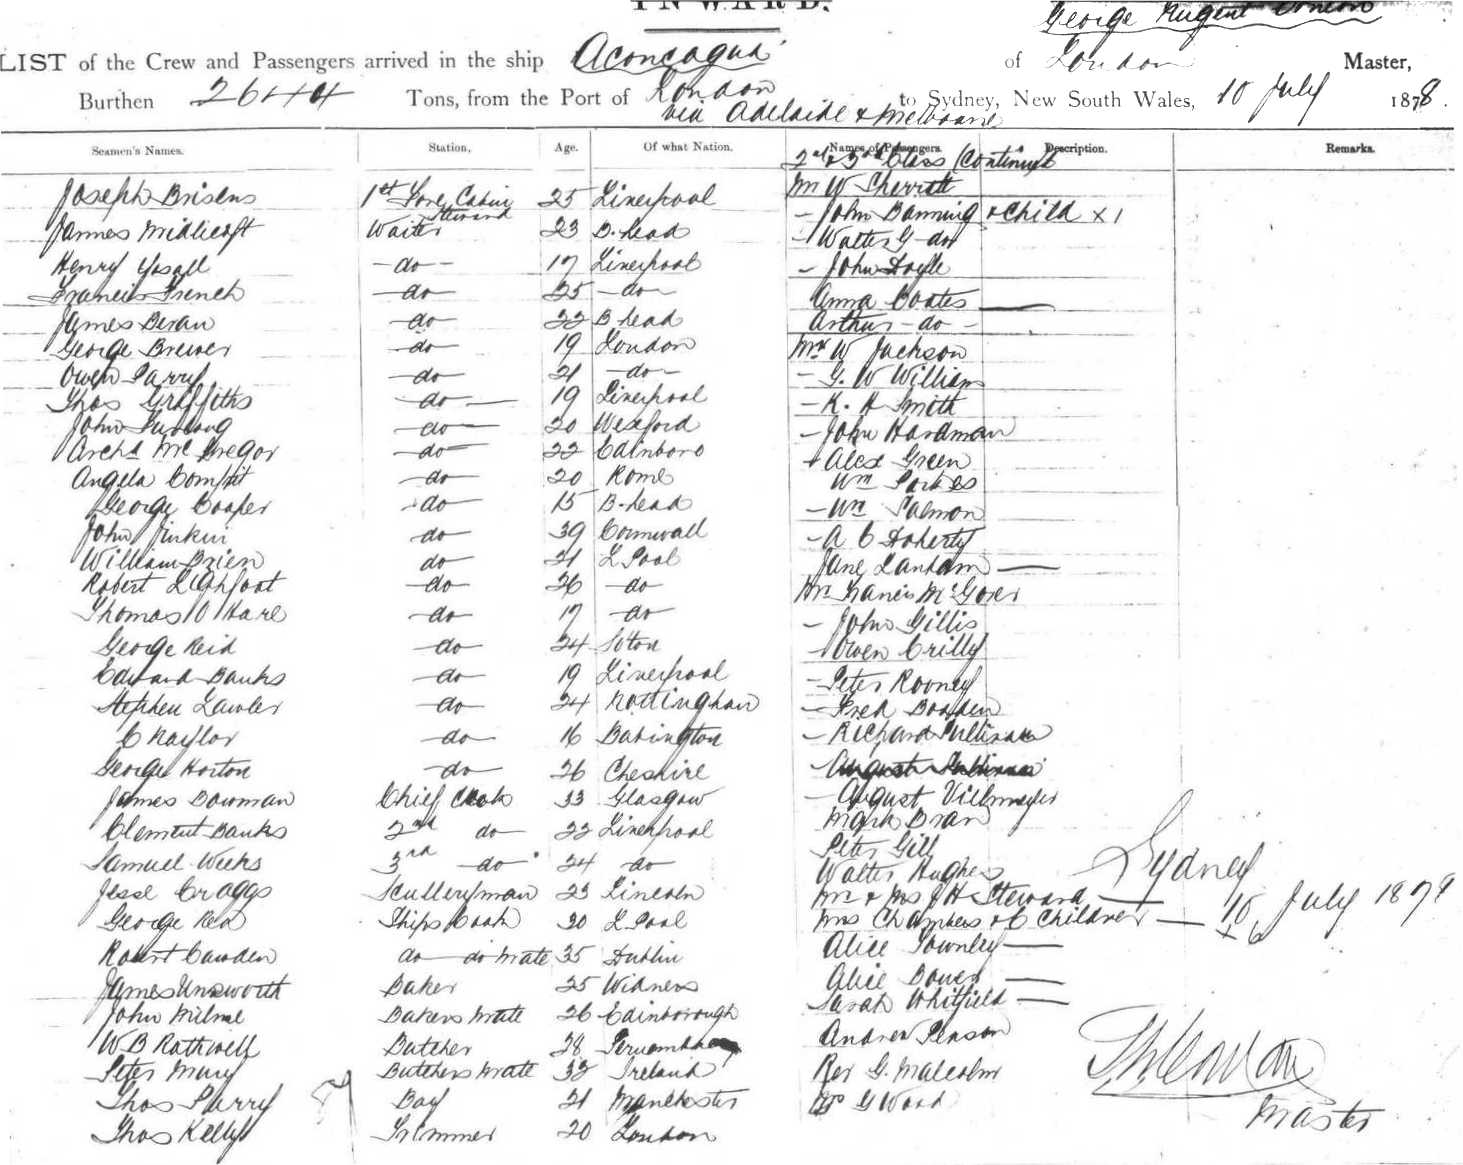 INWARD.
George Nugent Conlan
LIST of the Crew and Passengers arrived in the ship Aconcagua of London Master,
Burthen 2644 Tons, from the Port of London via Adelaide & Melbourne to Sydney, New South Wales, 10 July 1878.
Seamen's Names. Station, Age. Of what Nation. Names of Passengers. Description. Remarks.
2nd & 3rd Class (Continued
Joseph Brisens 1st Fore Cabin Steward 25 Liverpool Mr W Sherratt
James Midlicoft Waiter 23 B.head - John Banning & Child x 1
- Walter G - do
Henry Yosall - do - 17 Liverpool - John Doyle
Francis French - do 25 - do - Anna Coates
James Beran - do 22 B head Arthur - do -
George Brewer - do 19 London Mr W Jackson
Owen Parry - do 21 - do - - G. W Williams
Thos Griffiths - do - 19 Liverpool - K. H Smith
John Furlong - do - 20 Wexford - John Hardman
Archd McGregor - do - 22 Edinboro Alex Green
Angela - do 20 Rome Wm Parkes
George Cooper - do 15 B-head - Wm Salmon
John Jinkin do 39 Cornwall - A C Doherty
William Brien do 21 L Pool Jane Lanham
Robert Lighfoot - do - 26 - do Mr Francis McGorer
Thomas O Hare - do 17 - do - John Gillis
George Reid - do 24 Soton - Owen Crilly
Edward Banks - do 19 Liverpool - Peter Rooney
Stephen Lawler - do 24 Nottingham - Fred Boaden
C Naylor - do 16 Babington - Richard Sullivan
George Horton - do 26 Cheshire - August Sullivan
James Bowman Chief Cook 33 Glasgow - August Villmeyer
Clement Banks 2nd do 22 Liverpool Mark Dran
Samuel Weeks 3rd do 24 do Peter Gill
Walter Hughes
Jesse Craggs Sculleryman 23 Lincoln Mr & Mrs J H Steward
George Red Ships Cook 30 L Pool Mrs Chambers & 6 Children x 6
Sydney
10 July 1878
Robert Cawden do do Mate 35 Dublin Alice Townley
James Unsworth Baker 25 Widness Alice Bower
John Milne Bakers Mate 26 Edinborough Sarah Whitfield
W B Rothwell Butcher 28 Andrew Penson
Peter Mury Butchers Mate 32 Ireland Rev G. Malcolm
Thos Parry Boy 21 Manchester G Ward
Thos Kelly Trimmer 20 London
Master